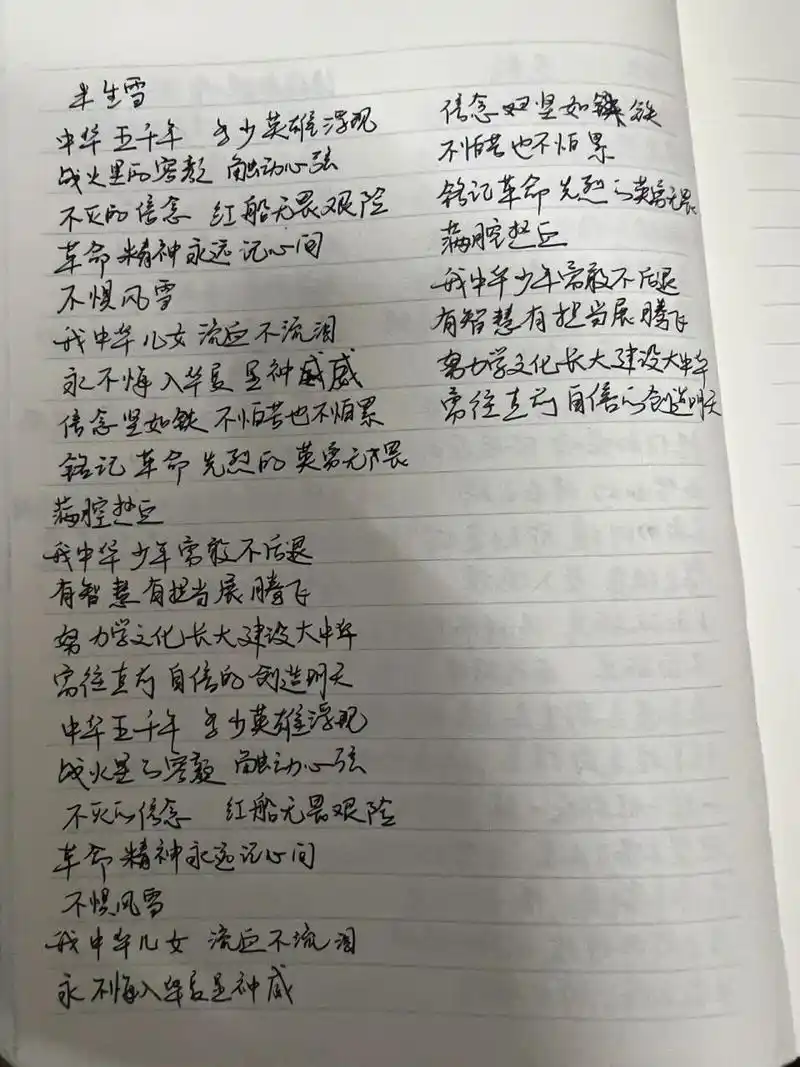 半生雪
中华五千年 多少英雄浮现
战火里的容颜 触动心弦
不灭的信念 红船无畏艰险
革命精神永远记心间
不惧风雪
我中华儿女 流血不流泪
永不悔入华夏 显神威
信念坚如铁 不怕苦也不怕累
铭记革命先烈的英勇无畏
满腔热血
我中华少年勇敢不后退
有智慧有担当展腾飞
努力学文化长大建设大中华
勇往直前 自信的创造明天
中华五千年 多少英雄浮现
战火里的容颜 触动心弦
不灭的信念 红船无畏艰险
革命精神永远记心间
不惧风雪
我中华儿女 流血不流泪
永不悔入华夏显神威
信念坚如铁
不怕苦也不怕累
铭记革命先烈的英勇无畏
满腔热血
我中华少年勇敢不后退
有智慧有担当展腾飞
努力学文化长大建设大中华
勇往直前 自信的创造明天